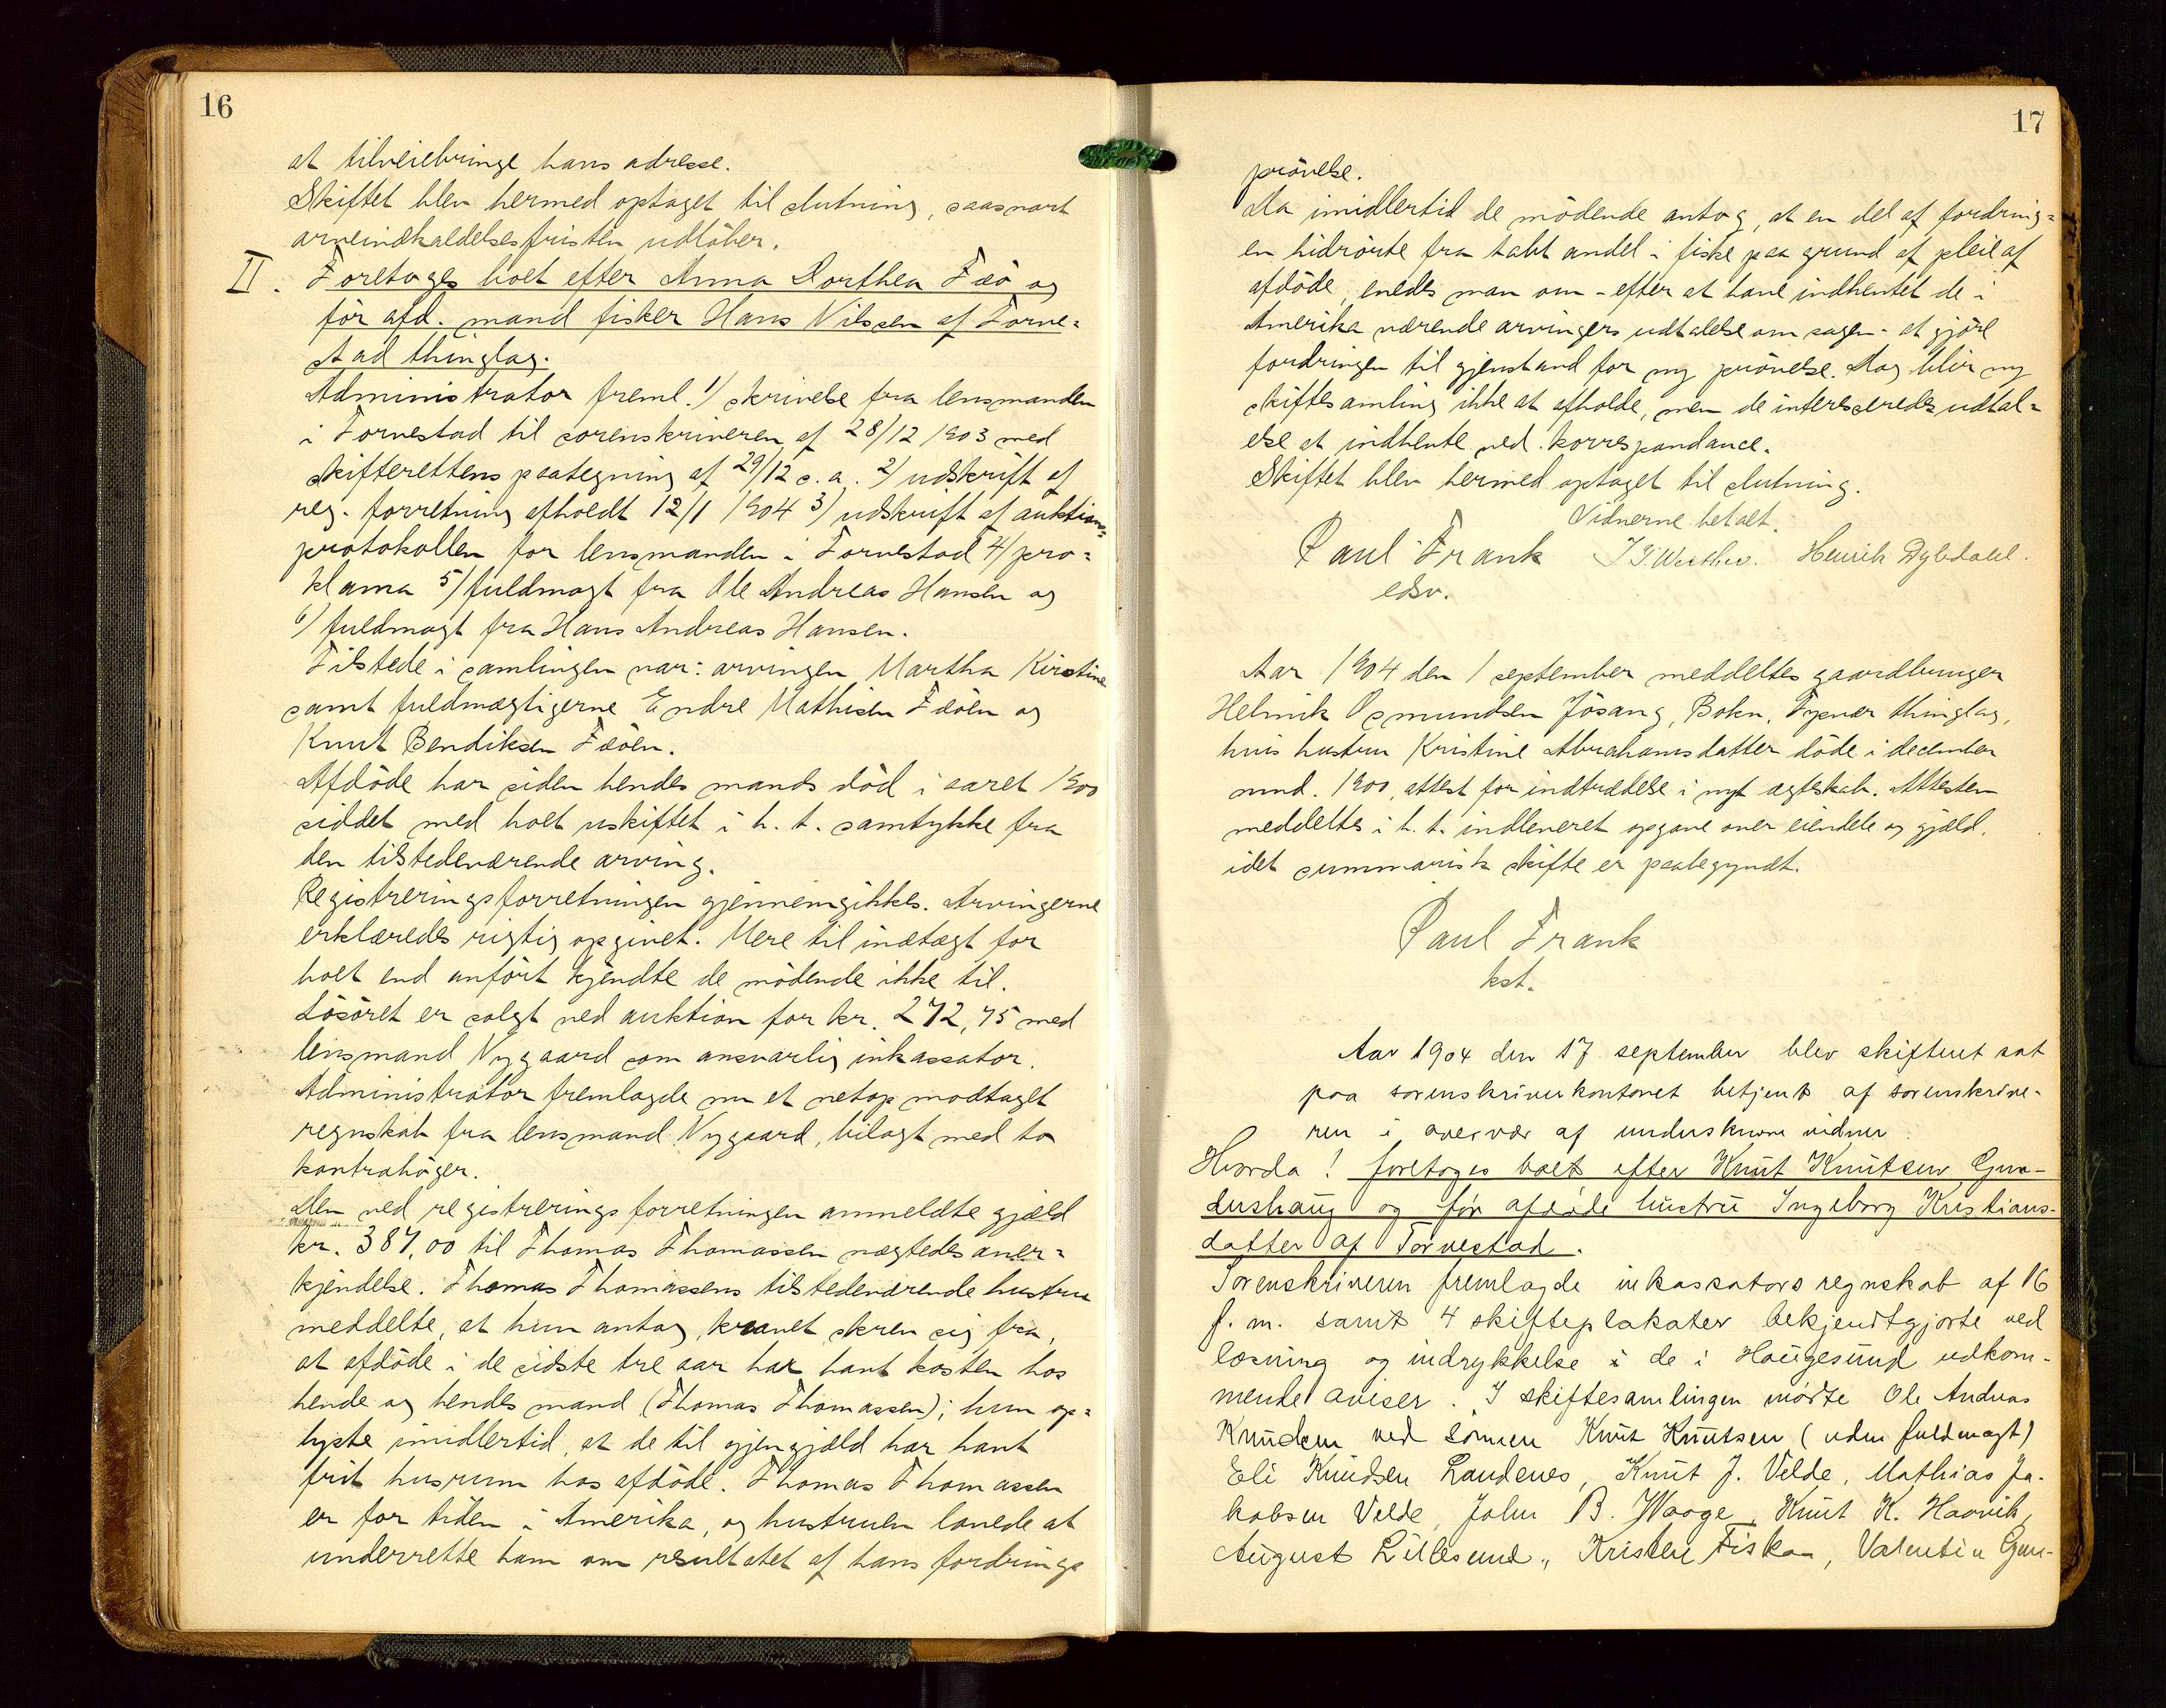 16
at tilveiebringe hans adresse.
Skiftet blev hermed optaget til slutning, saasnart
arveindkaldelsesfristen udløber.
II. Foretoges boet efter Anna Dorthea Feö og
før afd. mand fisker Hans Nilsen af Torve=
stad thinglag.
Administrator freml. 1) skrivelse fra lensmanden
i Torvestad til sorenskriveren af 28/12 1903 med
skifterettens paategning af 29/12 s. a. 2) udskrift af
reg. forretning afholdt 12/1 1904 3) udskrift af auktions=
protokollen for lensmanden i Torvestad 4) pro=
klama 5) fuldmagt fra Ole Andreas Hansen og
6) fuldmagt fra Hans Andreas Hansen.
Tilstede i samlingen var: arvingen Martha Kirstine
samt fuldmægtigerne Endre Mathisen Feöen og
Knut Bendiksen Feöen.
Afdöde har siden hendes mands död i aaret 1900
siddet med boet uskiftet i h. t. samtykke fra
den tilstedeværende arving.
Registreringsforretningen gjennemgikkes. Arvingerne
erklæredes rigtig opgivet. Mere til indtægt for
boet end anfört kjendte de mödende ikke til.
Lösöret er solgt ved auktion for kr. 272,75 med
lensmand Nygaard som ansvarlig inkassator.
Administrator fremlagde nu et netop modtaget
regnskab fra lensmand Nygaard, bilagt med to
kontrabøger.
Den ved registreringsforretningen anmeldte gjæld
kr. 387,00 til Thomas Thomassen nægtedes aner=
kjendelse. Thomas Thomassens tilstedeværende hustru
meddelte, at hun antog, kravet skrev sig fra,
at afdöde i de sidste tre aar har havt kosten hos
hende og hendes mand (Thomas Thomassen); hun op=
lyste imidlertid, at de til gjengjæld har havt
frit husrum hos afdöde. Thomas Thomassen
er for tiden i Amerika, og hustruen lovede at
underrette ham om resultatet af hans fordrings
17
prövelse.
Da imidlertid de mödende antog, at en del af fordring=
en hidrörte fra tabt andel i fiske paa grund af pleie af
afdöde, enedes man om - efter at have indhentet de i
Amerika værende arvingers udtalelse om sagen - at gjöre
fordringen til gjenstand for ny prövelse. Dog blir ny
skiftesamling ikke at afholde, men de interesseredes udtal=
else at indhente ved korrespondance.
Skiftet blev hermed optaget til slutning.
Vidnerne betalt.
Paul Frank Henrik Dybdahl.
edsv.
Aar 1904 den 1 september meddeltes gaardbruger
Helmik Osmundsen Jösang, Bokn, Tysvær thinglag,
hvis hustru Kristine Abrahamsdatter döde i december
mnd. 1900, attest for indtrædelse i nyt ægteskab. Attesten
meddeltes i h. t. indleveret opgave over eiendele og gjæld,
idet summarisk skifte er paabegyndt.
Paul Frank
kst.
Aar 1904 den 17 september blev skifteret sat
paa sorenskriverkontoret betjent af sorenskrive-
ren i overvær af underskrevne vidner.
Hvorda! foretoges boet efter Knut Knutsen Gun-
dershaug og før afdøde hustru Ingeborg Kristians-
datter af Torvestad.
Sorenskriveren fremlagde inkassators regnskab af 16
f. m. samt 4 skifteplakater bekjendtgjorte ved
læsning og indrykkelse i de i Haugesund udkom-
mende aviser. I skiftesamlingen mødte Ole Andreas
Knudsen ved sønnen Knut Knutsen (uden fuldmagt)
Eli Knudsen Landenes, Knut J. Velde, Mathias Ja-
kobsen Velde, John B. Waage, Knut K. Haavik,
August Lillesund, Kristen Fiskaa, Valentin Gun-